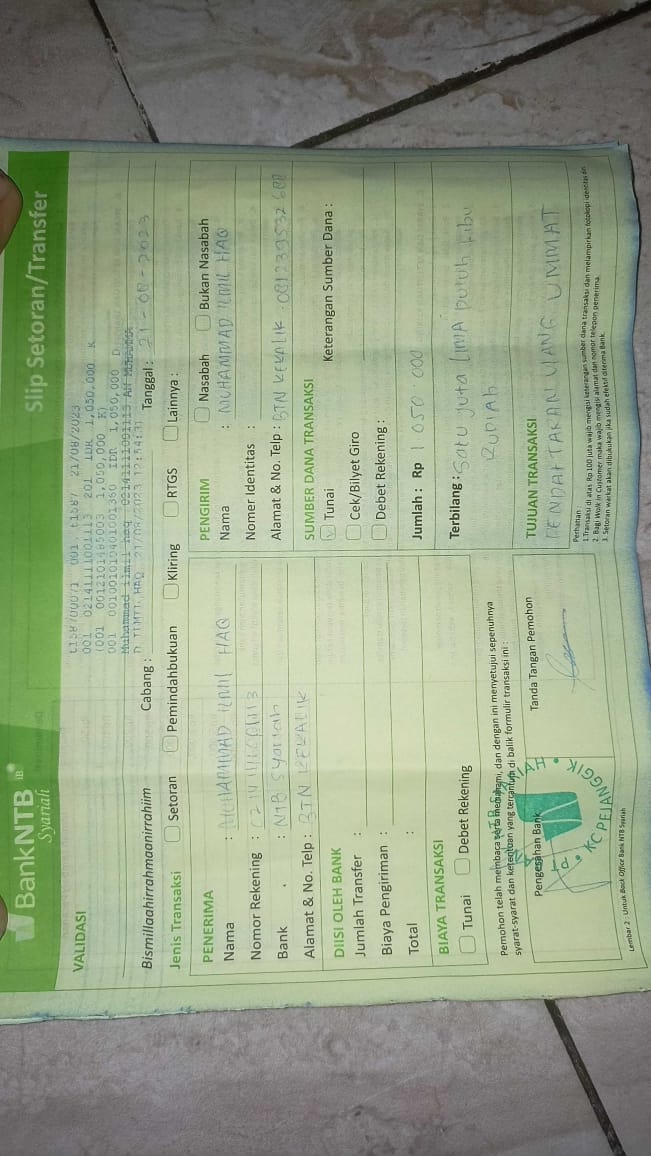 BankNTB iB
Syariah
Slip Setoran/Transfer
VALIDASI
t1587 21/08/2023
201 IDR 1,050,000 K
1,050,000 K)
IDR 1,050,000 D
Muhammad ilmil haq
21/08/2023
Bismillaahirrahmaanirrahiim
Cabang :
Tanggal : 21-08-2023
Jenis Transaksi
Setoran
Pemindahbukuan
Kliring
RTGS
Lainnya :
PENERIMA
Nama : MUHAMMAD ILMIL HAQ
Nomor Rekening :
Bank : NTB Syariah
Alamat & No. Telp : BTN KEKALIK
DIISI OLEH BANK
Jumlah Transfer :
Biaya Pengiriman :
Total :
BIAYA TRANSAKSI
Tunai
Debet Rekening
PENGIRIM
Nasabah
Bukan Nasabah
Nama : MUHAMMAD ILMIL HAQ
Nomer Identitas :
Alamat & No. Telp : BTN KEKALIK
SUMBER DANA TRANSAKSI
Tunai
Keterangan Sumber Dana :
Cek/Bilyet Giro
Debet Rekening :
Jumlah : Rp 1 050 000
Terbilang : Satu Juta LIMA Puluh Ribu
RUPIAH
Pemohon telah membaca serta memahami, dan dengan ini menyetujui sepenuhnya
syarat-syarat dan ketentuan yang tercantum di balik formulir transaksi ini :
Pengesahan Bank
Tanda Tangan Pemohon
KC PEJANGGIK
TUJUAN TRANSAKSI
PENDAFTARAN ULANG UMMAT
Perhatian :
1. Transaksi di atas Rp.100 juta wajib mengisi keterangan sumber dana transaksi dan melampirkan fotokopi identitas diri
2. Bagi Walk In Customer maka wajib mengisi alamat dan nomor telepon penerima.
3. Setoran warkat akan dibukukan jika sudah efektif diterima Bank.
Lembar 2 : Untuk Back Office Bank NTB Syariah